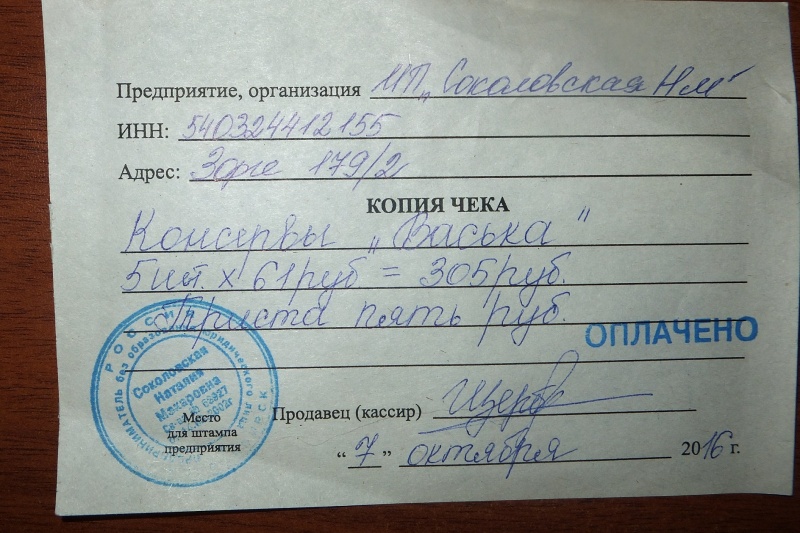 Предприятие, организация ИП „Соколовская НМ"
ИНН: 540324412155
Адрес: Зорге 179/2
КОПИЯ ЧЕКА
Консервы „Васька"
5шт. х 61руб = 305руб.
Триста пять руб.
ОПЛАЧЕНО
РОССИЯ
Соколовская
Наталия
Макаровна
Место
для штампа
предприятия
Продавец (кассир)
"7" октября 2016 г.